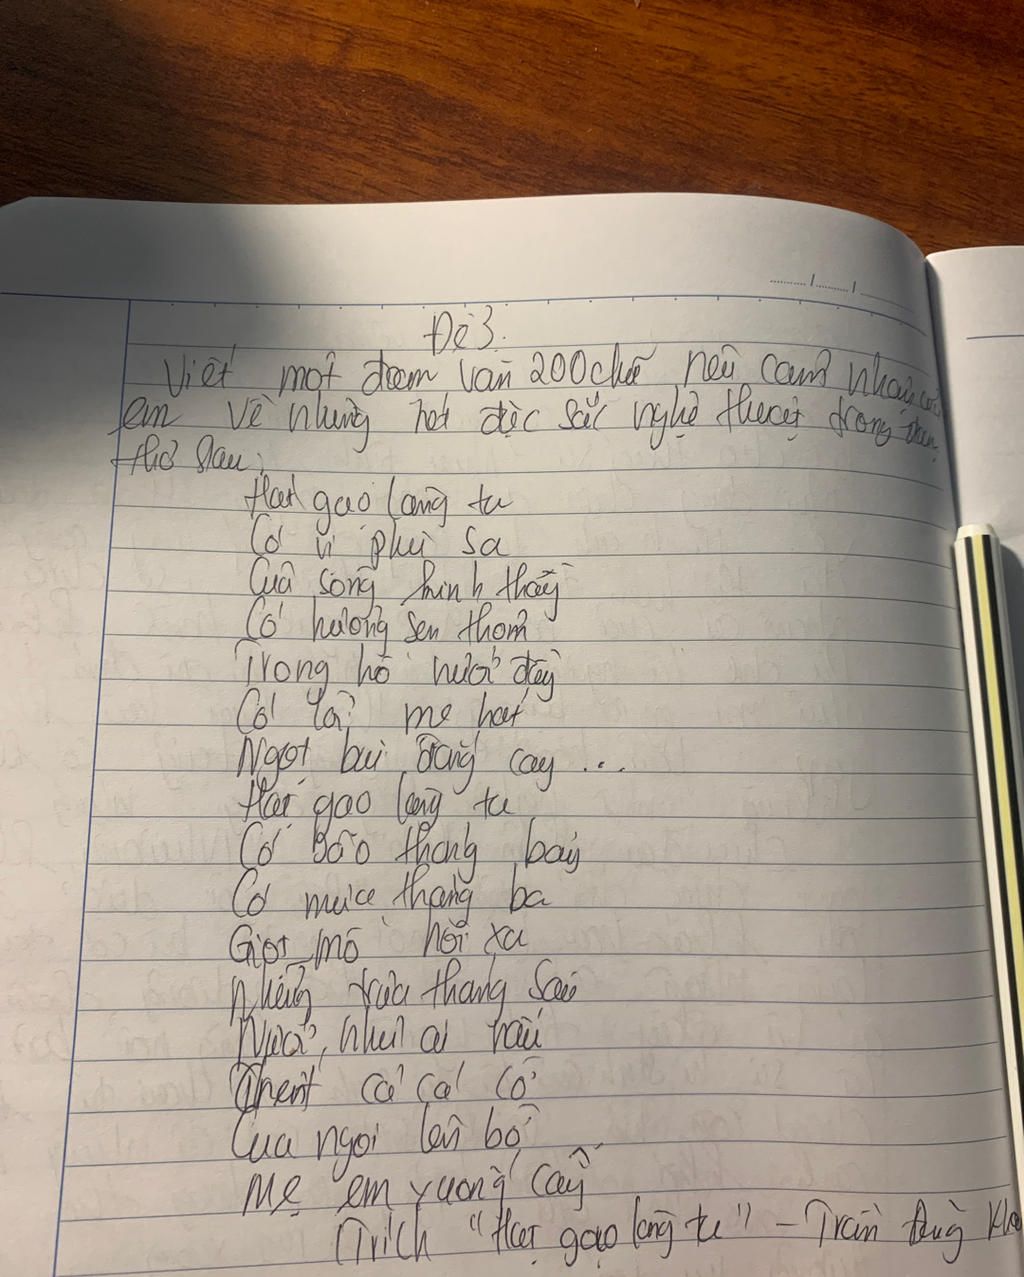 Đề 3.
Viết một đoạn văn 200 chữ nêu cảm nhận của
em về những nét đặc sắc nghệ thuật trong đoạn
thơ sau:
Hạt gạo làng ta
Có vị phù sa
Của sông Kinh thầy
Có hương sen thơm
Trong hồ nước đầy
Có lời mẹ hát
Ngọt bùi đắng cay ...
Hạt gạo làng ta
Có bão tháng bảy
Có mưa tháng ba
Giọt mồ hôi sa
Những trưa tháng sáu
Nước như ai nấu
Chết cả cá cờ
Cua ngoi lên bờ
Mẹ em xuống cấy
Trích "Hạt gạo làng ta" - Trần Đăng Khoa